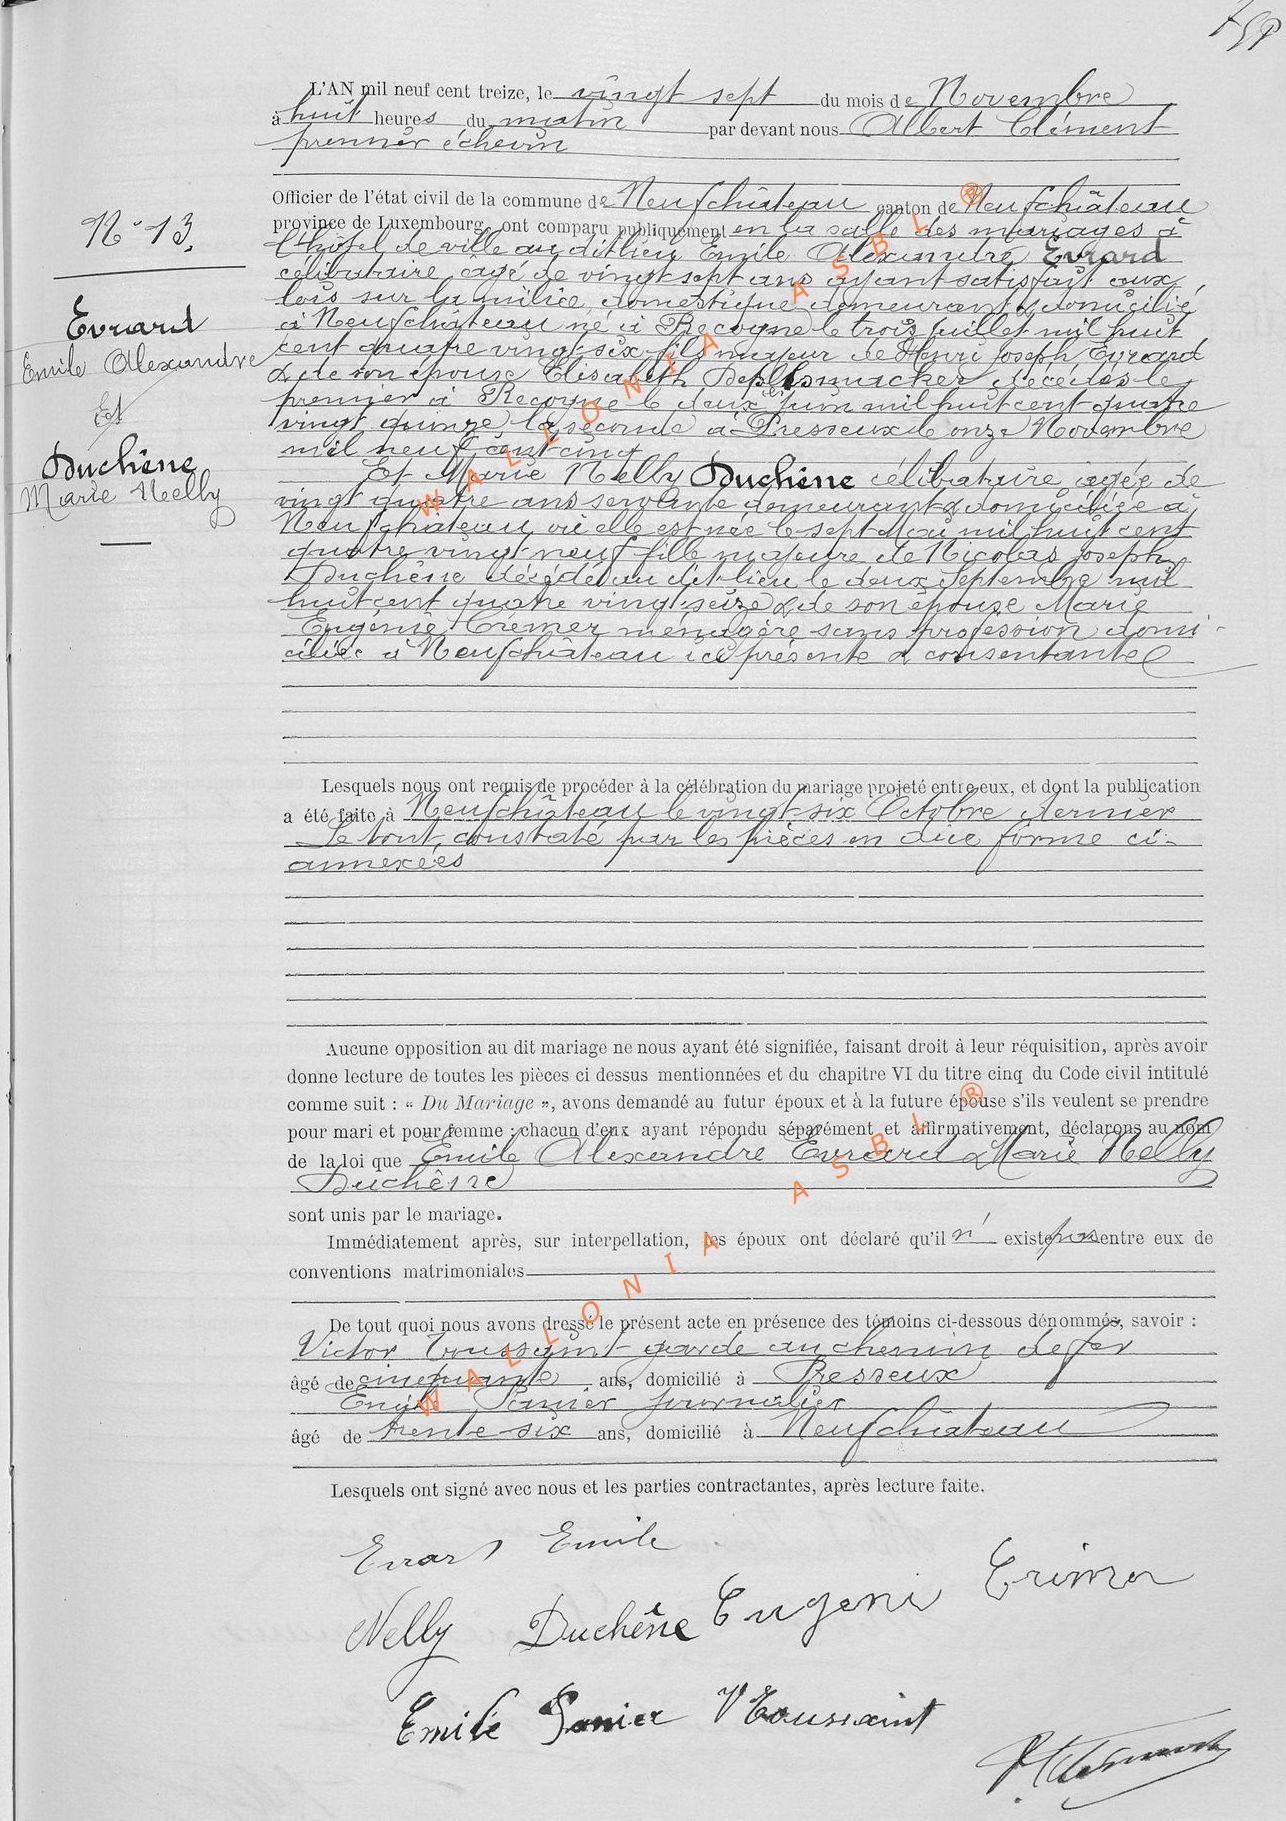 L'AN mil neuf cent treize, le vingt sept du mois de Novembre
à huit heures du matin par devant nous Albert Clément
premier échevin
Officier de l'état civil de la commune de Neufchâteau canton de Neufchâteau
province de Luxembourg, ont comparu publiquement en la salle des mariages à
l'hôtel de ville au dit lieu Emile Alexandre Evrard
célibataire âgé de vingt sept ans ayant satisfait aux
lois sur la milice, domestique demeurant & domicilié
à Neufchâteau né à Recogne le trois juillet mil huit
cent quatre vingt-six fils majeur de Henri Joseph Evrard
& de son épouse Elisabeth décédés le
premier à Recogne le deux juin mil huit cent quatre
vingt quinze la seconde à Presseux le onze Novembre
mil neuf cent cinq
Et Marie Nelly Duchêne célibataire âgée de
vingt quatre ans servante demeurant & domiciliée à
Neufchâteau où elle est née le sept Mai mil huit cent
quatre vingt neuf fille majeure de Nicolas Joseph
Duchêne décédé au dit lieu le deux Septembre mil
huit cent quatre vingt seize & de son épouse Marie
Eugénie Crémer ménagère sans profession domi-
ciliée à Neufchâteau ici présente & consentante
N° 13.
Evrard
Emile Alexandre
Et
Duchêne
Marie Nelly
Lesquels nous ont requis de procéder à la célébration du mariage projeté entre eux, et dont la publication
a été faite à Neufchâteau le vingt-six Octobre dernier
Le tout constaté par les pièces en due forme ci-
annexées
Aucune opposition au dit mariage ne nous ayant été signifiée, faisant droit à leur réquisition, après avoir
donne lecture de toutes les pièces ci dessus mentionnées et du chapitre VI du titre cinq du Code civil intitulé
comme suit : « Du Mariage », avons demandé au futur époux et à la future épouse s'ils veulent se prendre
pour mari et pour femme : chacun d'eux ayant répondu séparément et affirmativement, déclarons au nom
de la loi que Emile Alexandre Evrard & Marie Nelly
Duchêne
sont unis par le mariage.
Immédiatement après, sur interpellation, les époux ont déclaré qu'il n' existe pas entre eux de
conventions matrimoniales
De tout quoi nous avons dressé le présent acte en présence des témoins ci-dessous dénommés, savoir :
Victor Toussaint garde au chemin de fer
âgé de cinquante ans, domicilié à Presseux
Emile journalier
âgé de trente-six ans, domicilié à Neufchâteau
Lesquels ont signé avec nous et les parties contractantes, après lecture faite.
Evrard Emile
Nelly Duchêne Eugenie Crémer
Emile V Toussaint
WALLONIA ASBL ®
WALLONIA ASBL ®